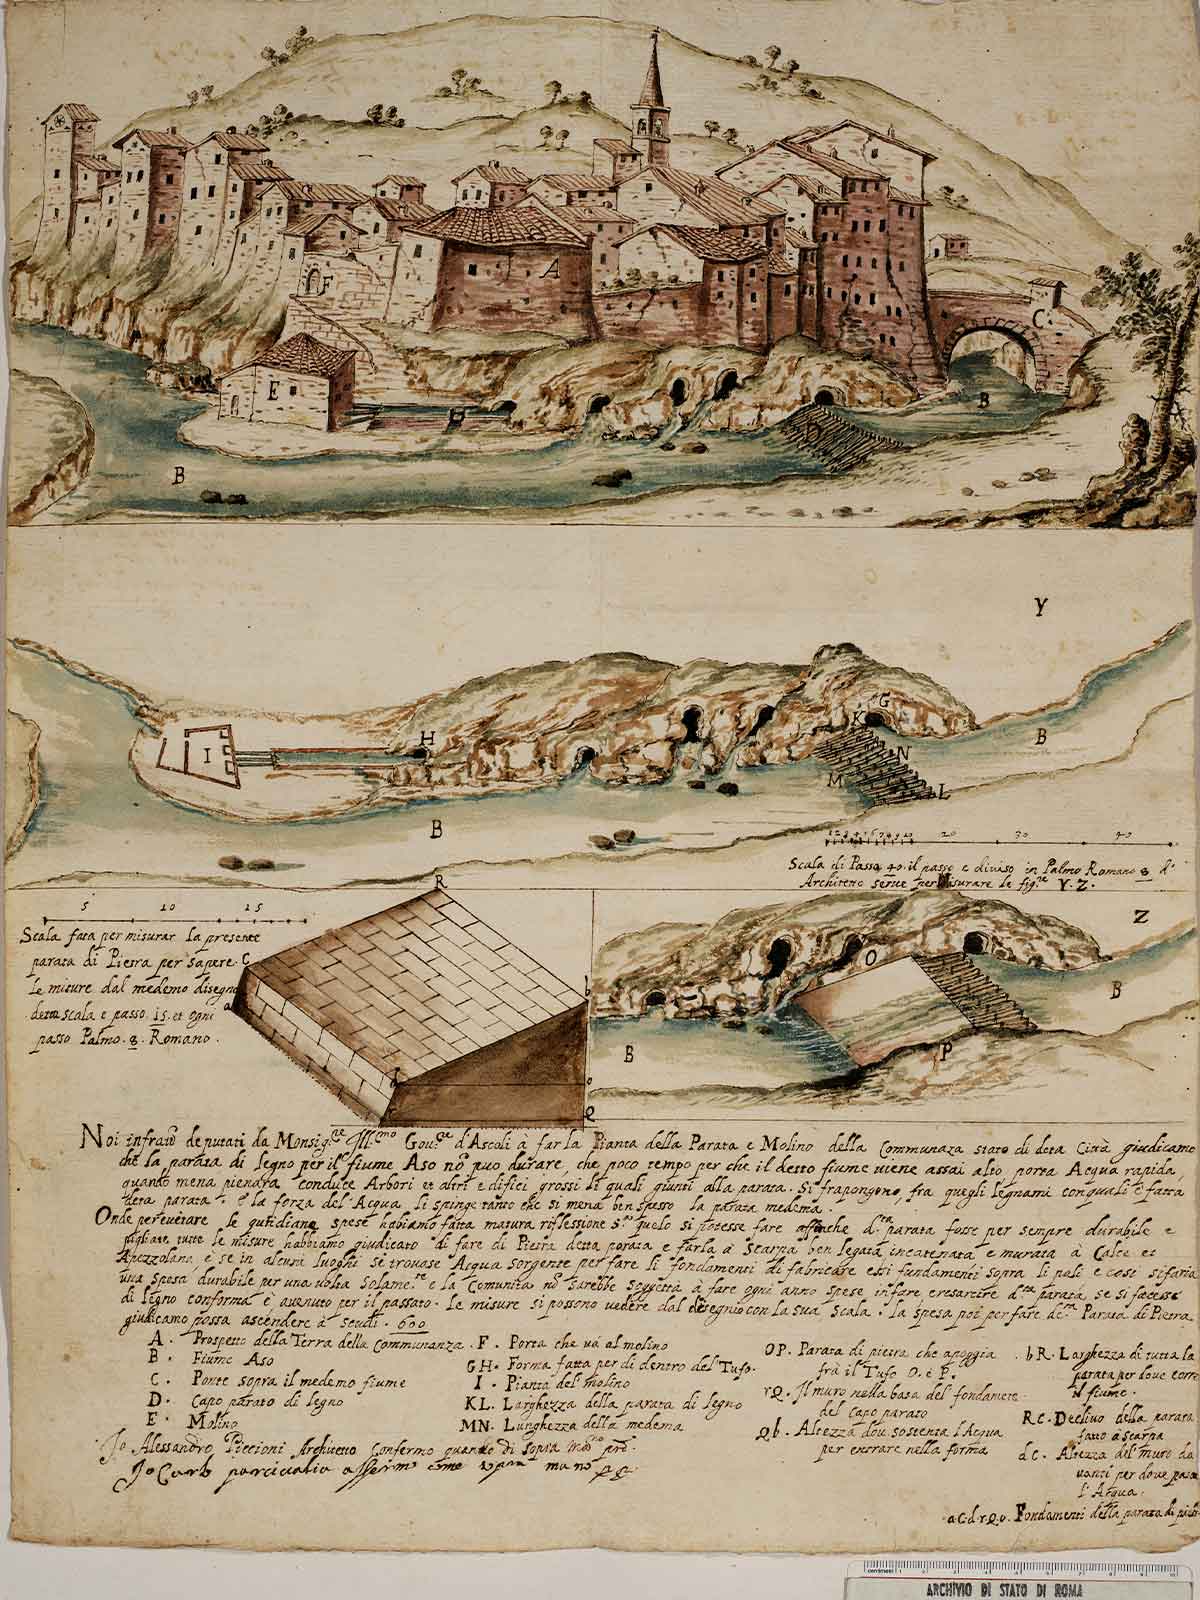 A
F
C.
E
B
D
H
B
Y
G
K
H
I
N
B
M
L
B
1 2 3 4 5 6 7 8 9 10 20 30 40
Scala di Passa 40. il passo e diuiso in Palmo Romano 8 d'
Architetto serue per Misurare le fig.re Y. Z.
R
5 10 15
Scala fata per misurar la presente
parata di Pietra per sapere
le misure dal medemo disegno
detta scala e passo 15. et ogni
passo Palmo. 8. Romano.
C
a
b
d
o
Q
Z
O
B
B
P
Noi infratti deputati da Monsig.re Ill.mo Gou.re d'Ascoli à far la Pianta della Parata e Molino della Communaza stato di deta Città giudicamo
che la parata di legno per il fiume Aso nõ puo durare, che poco tempo per che il detto fiume viene assai alto, porta Acqua rapida,
quando mena pienara conduce Arbori et altri edifici grossi li quali giunti alla parata. Si frapongono, fra quegli legnami con quali è fatta
deta parata. e la forza del'Acqua li spinge tanto che si mena ben spesso la parata medema.
Onde per euitare le qutidiane spese habiamo fatta matura riflessione quelo si potesse fare affinche d.ta parata fosse per sempre durabile e
pigliate tutte le misure habbiamo giudicato di fare di Pietra detta parata e farla à Scarpa ben legata incatenata e murata à Calce et
Apozzolana e se in alcuni luoghi se trouase Acqua sorgente per fare li fondamenti di fabricare essi fundamenti sopra li pali e cosi si faria
una spesa durabile per una volta solame.te e la Comunita nõ sarebbe soggetta à fare ogni anno spese in fare eresarcire d.ta parata se si facesse
di legno conforma è auenuto per il passato. le misure si possono vedere dal disegnio con la sua Scala. la spesa poi per fare de.ta Parata di Pietra
giudicamo possa ascendere à scudi. 600
A. Prospetto della Terra della Communanza.
B. Fiume Aso
C. Ponte sopra il medemo fiume
D. Capo parato di legno
E. Molino
F. Porta che và al molino
GH. Forma fatta per di dentro del Tufo.
I. Pianta del molino
KL. Larghezza della parata di legno
MN. Lunghezza della medema
OP. Parata di pietra che apoggia
frà il Tufo O. e P.
rQ. Il muro nella basa del fondamete
del capo parato
Qb. Altezza dou sostenta l'Acqua
per entrare nella forma
bR. Larghezza di tutta la
parata per doue corre
il fiume.
RC. Decliuo della parata
fatto à scarpa
dC. Altezza del muro da
uanti per doue passa
l'Acqua.
a.C.d.r.Q.o. Fondamenti della parata di pietr
Jo. Alessandro Piccioni Architetto Confermo quanto di sopra
Jo Carlo come mano
centimetri
ARCHIVIO DI STATO DI ROMA